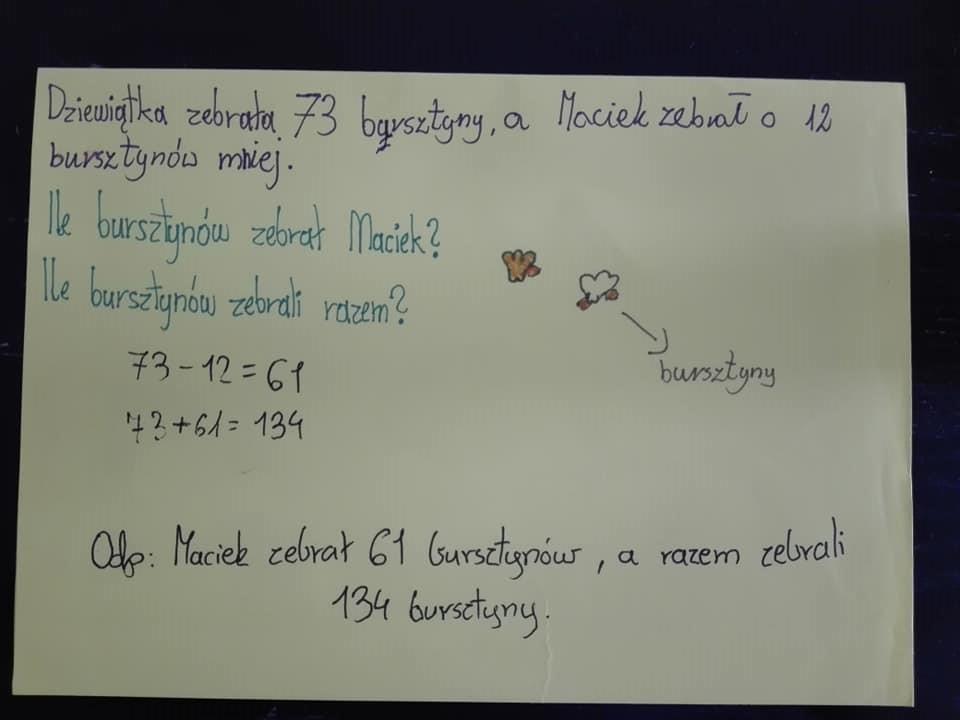 Dziewiątka zebrała 73 bursztyny, a Maciek zebrał o 12
bursztynów mniej.
Ile bursztynów zebrał Maciek?
Ile bursztynów zebrali razem?
73 - 12 = 61
73 + 61 = 134
bursztyny
Odp: Maciek zebrał 61 bursztynów, a razem zebrali
134 bursztyny.